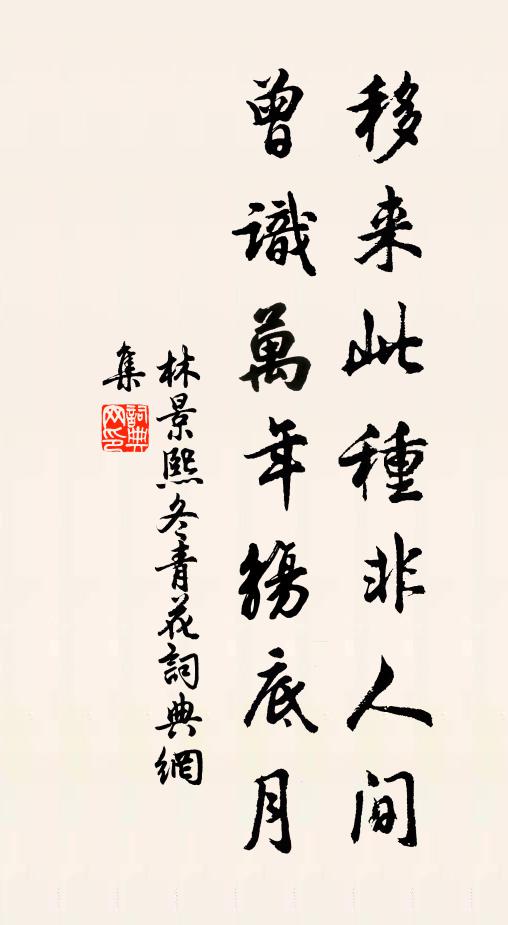 移来此種非人间
曾識萬年觴底月
林景熙冬青花詞典網
集
詞典网印